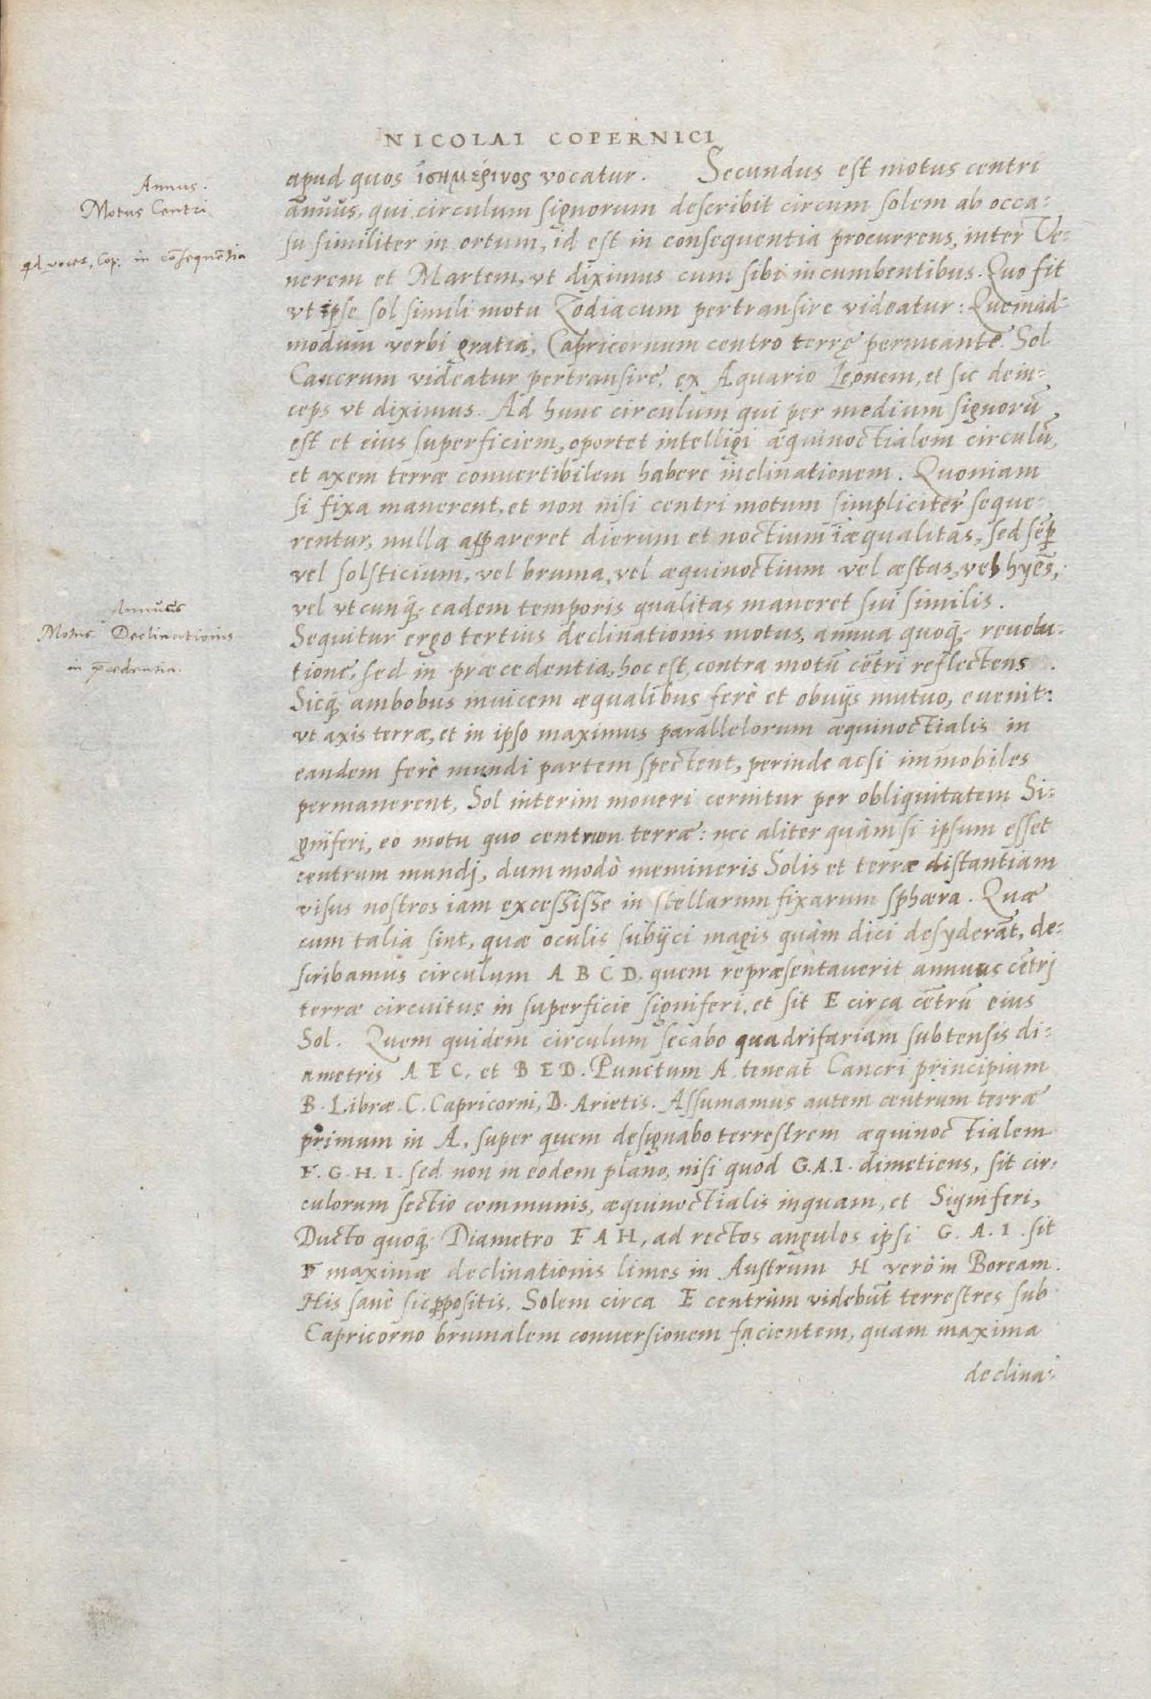 NICOLAI COPERNICI
apud quos ἰσημέρινος vocatur. Secundus est motus centri
annuus, qui circulum signorum describit circum solem ab occa:
su similiter in ortum, id est in consequentia procurrens, inter Ve:
nerem et Martem, vt diximus cum sibi incumbentibus. Quo fit
vt ipse sol simili motu Zodiacum pertransire videatur: Quemad:
modum verbi gratia, Capricornum centro terrę permeante. Sol
Cancrum videatur pertransire, ex Aquario Leonem, et sic dein:
ceps vt diximus. Ad hunc circulum qui per medium signorū
est et eius superficiem, oportet intelligi æquinoctialem circulū,
et axem terræ convertibilem habere inclinationem. Quoniam
si fixa manerent, et non nisi centri motum simpliciter seque:
rentur, nulla appareret dierum et noctium īæqualitas, sed sēp
vel solsticium, vel bruma, vel æquinoctium vel æstas, vel hyēs,
vel vt cunq́, eadem temporis qualitas maneret sui similis.
Sequitur ergo tertius declinationis motus, annua quoq́, revolu:
tione, sed in præcedentia, hoc est, contra motū cētri reflectens.
Sicq́ ambobus invicem æqualibus ferè et obvijs mutuo, evenit:
vt axis terræ, et in ipso maximus parallelorum æquinoctialis in
eandem ferè mundi partem spectent, perinde acsi immobiles
permanerent, Sol interim moveri cernitur per obliquitatem Si:
gniferi, eo motu quo centrum terræ: nec aliter quàm si ipsum esset
centrum mundj, dum modò memineris Solis et terræ distantiam
visus nostros iam excessisse in stellarum fixarum sphæra. Quæ
cum talia sint, quæ oculis subijci magis quàm dici desyderāt, de:
scribamus circulum A B C D. quem repræsentaverit annuus cētrj
terræ circuitus in superficie signiferi, et sit E circa cētrū eius
Sol. Quem quidem circulum secabo quadrifariam subtensis di:
ametris A E C. et B E D. Punctum A. teneat Cancri principium
B. Libræ. C. Capricorni, D. Arietis. Assumamus autem centrum terræ
primum in A, super quem designabo terrestrem æquinoctialem
F. G. H. I. sed non in eodem plano, nisi quod G.A.I. dimetiens, sit cir:
culorum sectio communis, æquinoctialis inquam, et Signiferi,
Ducto quoq́ Diametro F A H, ad rectos angulos ipsi G. A. I. sit
F maximæ declinationis limes in Austrum H verò in Boream.
His sanè sic ꝓpositis. Solem circa E centrum videbūt terrestres sub
Capricorno brumalem conversionem facientem, quam maxima
declina:
Annus.
Motus Centri
qd vocet, Cop. in cōsequētia
Annuus
Motus Declinationis
in p̄cedentia.